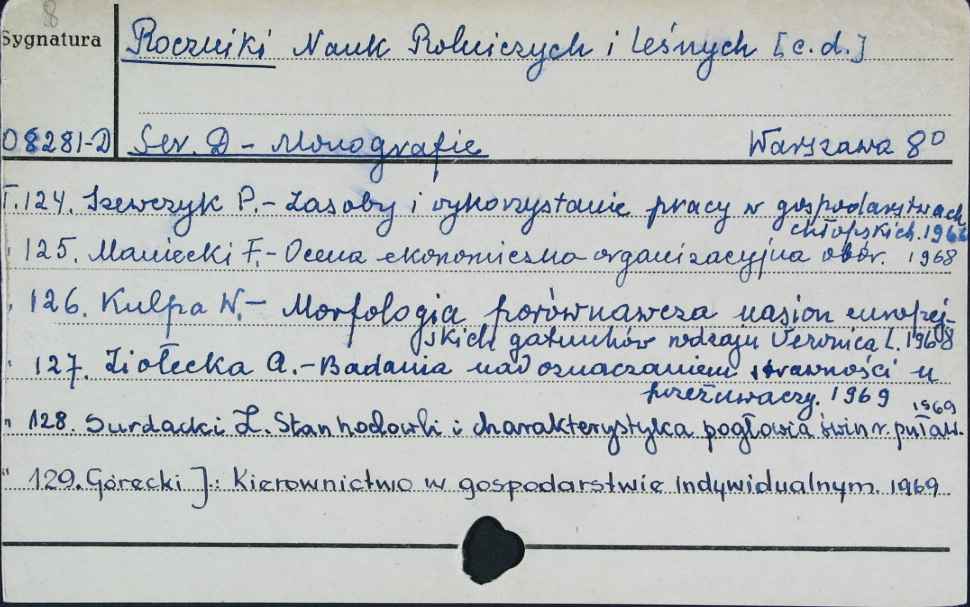 8
Sygnatura
Roczniki Nauk Rolniczych i Leśnych [c.d.]
08281-D
Ser. D - Monografie
Warszawa 8°
T.124. Szewczyk P.- Zasoby i wykorzystanie pracy w gospodarstwach
chłopskich. 1968
" 125. Maniecki F.- Ocena ekonomiczno organizacyjna obór. 1968
" 126. Kulpa W.- Morfologia porównawcza nasion europej-
skich gatunków rodzaju Veronica L. 1968
" 127. Ziołecka A.- Badania nad oznaczaniem strawności u
przeżuwaczy. 1969
1969
" 128. Surdacki Z. Stan hodowli i charakterystyka pogłowia świn r. puław.
" 129. Górecki J.: Kierownictwo w gospodarstwie indywidualnym. 1969